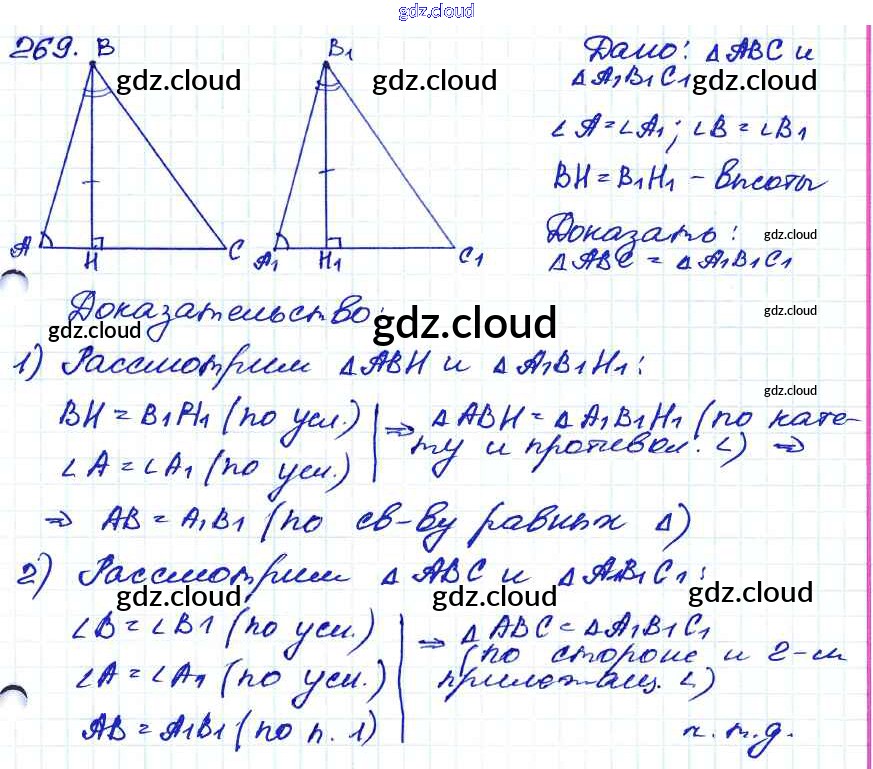 gdz.cloud
269.
B
B₁
A
H
C
A₁
H₁
C₁
gdz.cloud
gdz.cloud
gdz.cloud
Дано: △ABC и
△A₁B₁C₁
∠A=∠A₁; ∠B=∠B₁
BH=B₁H₁ - высоты
Доказать:
gdz.cloud
△ABC = △A₁B₁C₁
Доказательство:
gdz.cloud
gdz.cloud
gdz.cloud
1) Рассмотрим △ABH и △A₁B₁H₁:
gdz.cloud
BH=B₁H₁ (по усл.)
∠A=∠A₁ (по усл.)
⇒ △ABH=△A₁B₁H₁ (по кате-
ту и противол. ∠) ⇒
⇒ AB=A₁B₁ (по св-ву равных △)
2) Рассмотрим △ABC и △A₁B₁C₁:
gdz.cloud
gdz.cloud
gdz.cloud
∠B=∠B1 (по усл.)
∠A=∠A₁ (по усл.)
AB=A₁B₁ (по п. 1)
⇒ △ABC=△A₁B₁C₁
(по стороне и 2-м
прилежащ. ∠)
ч.т.д.